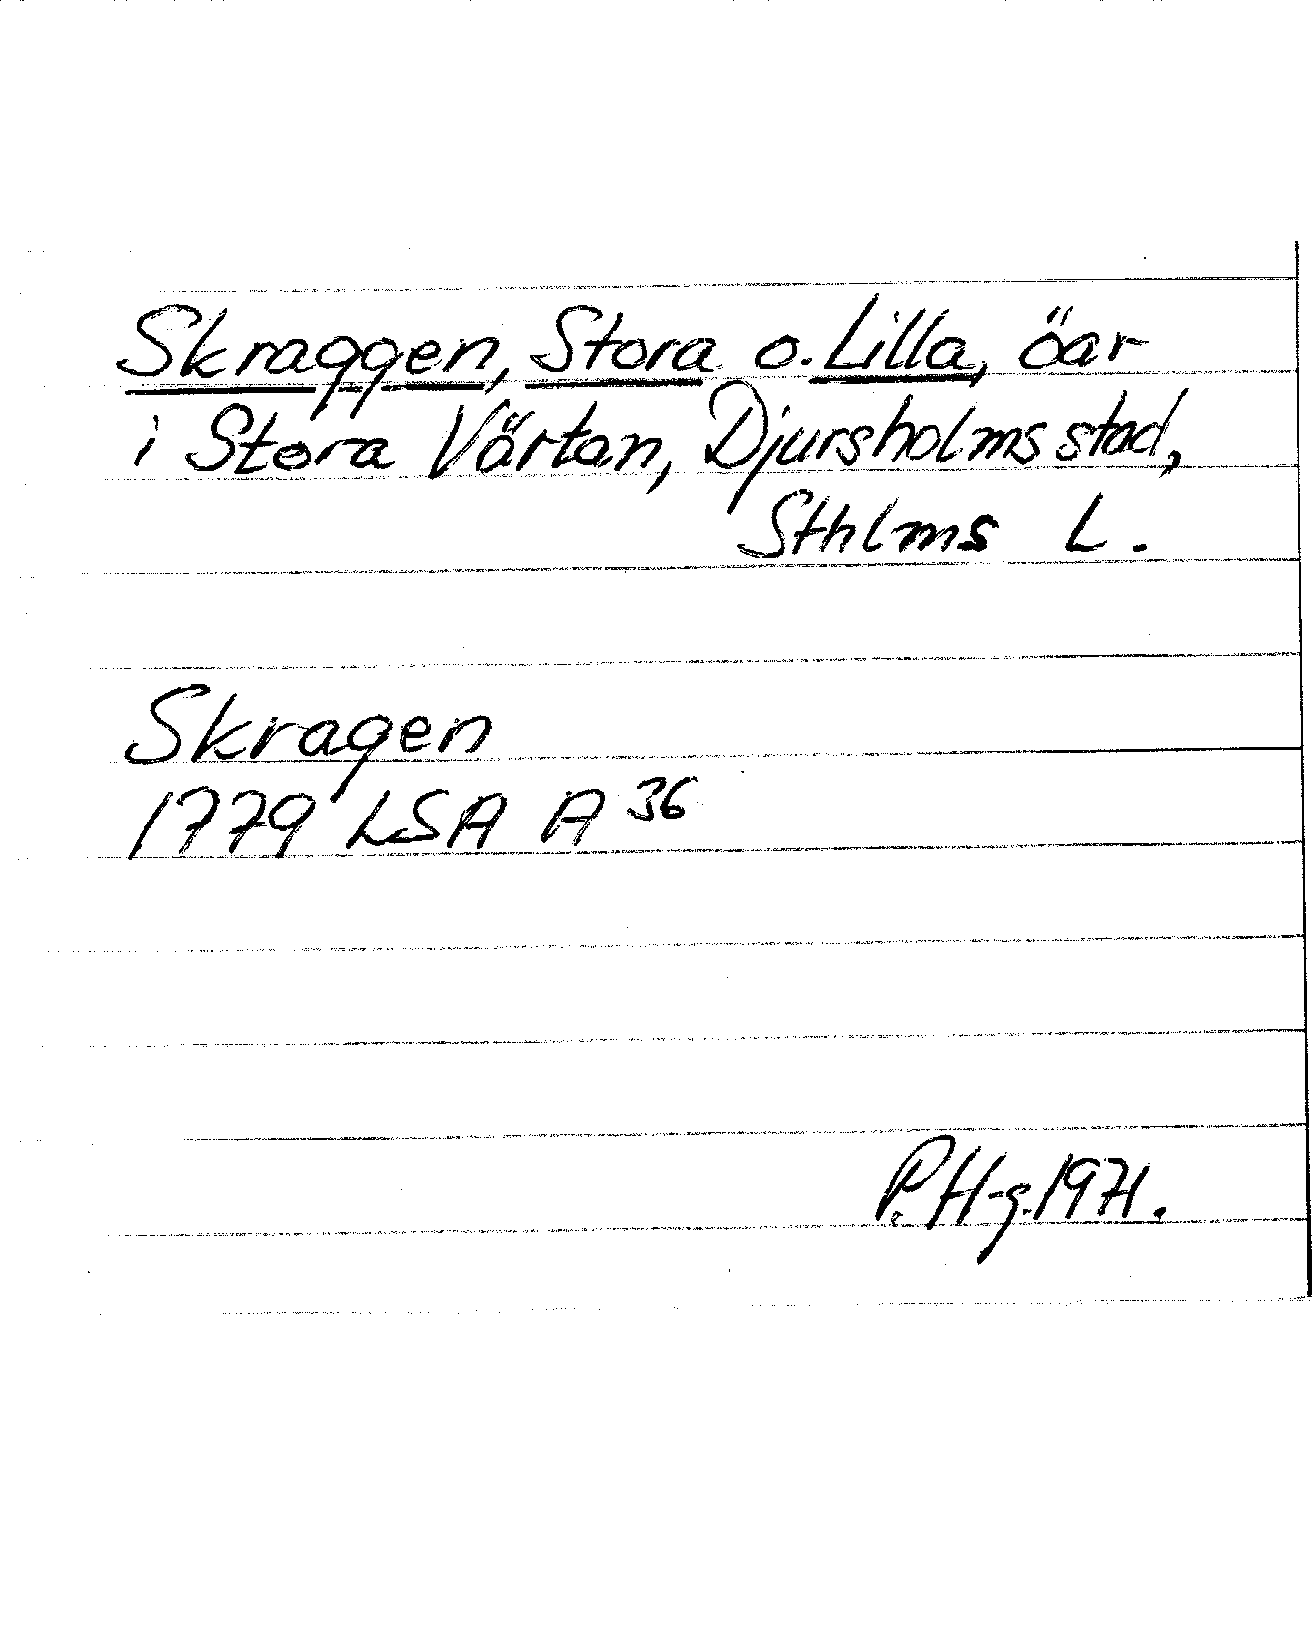 Skraggen, Stora o. Lilla, öar
i Stora Värtan, Djursholms stad,
Sthlms L.
Skragen
1779 LSA A 36
P. H-g. 1971.